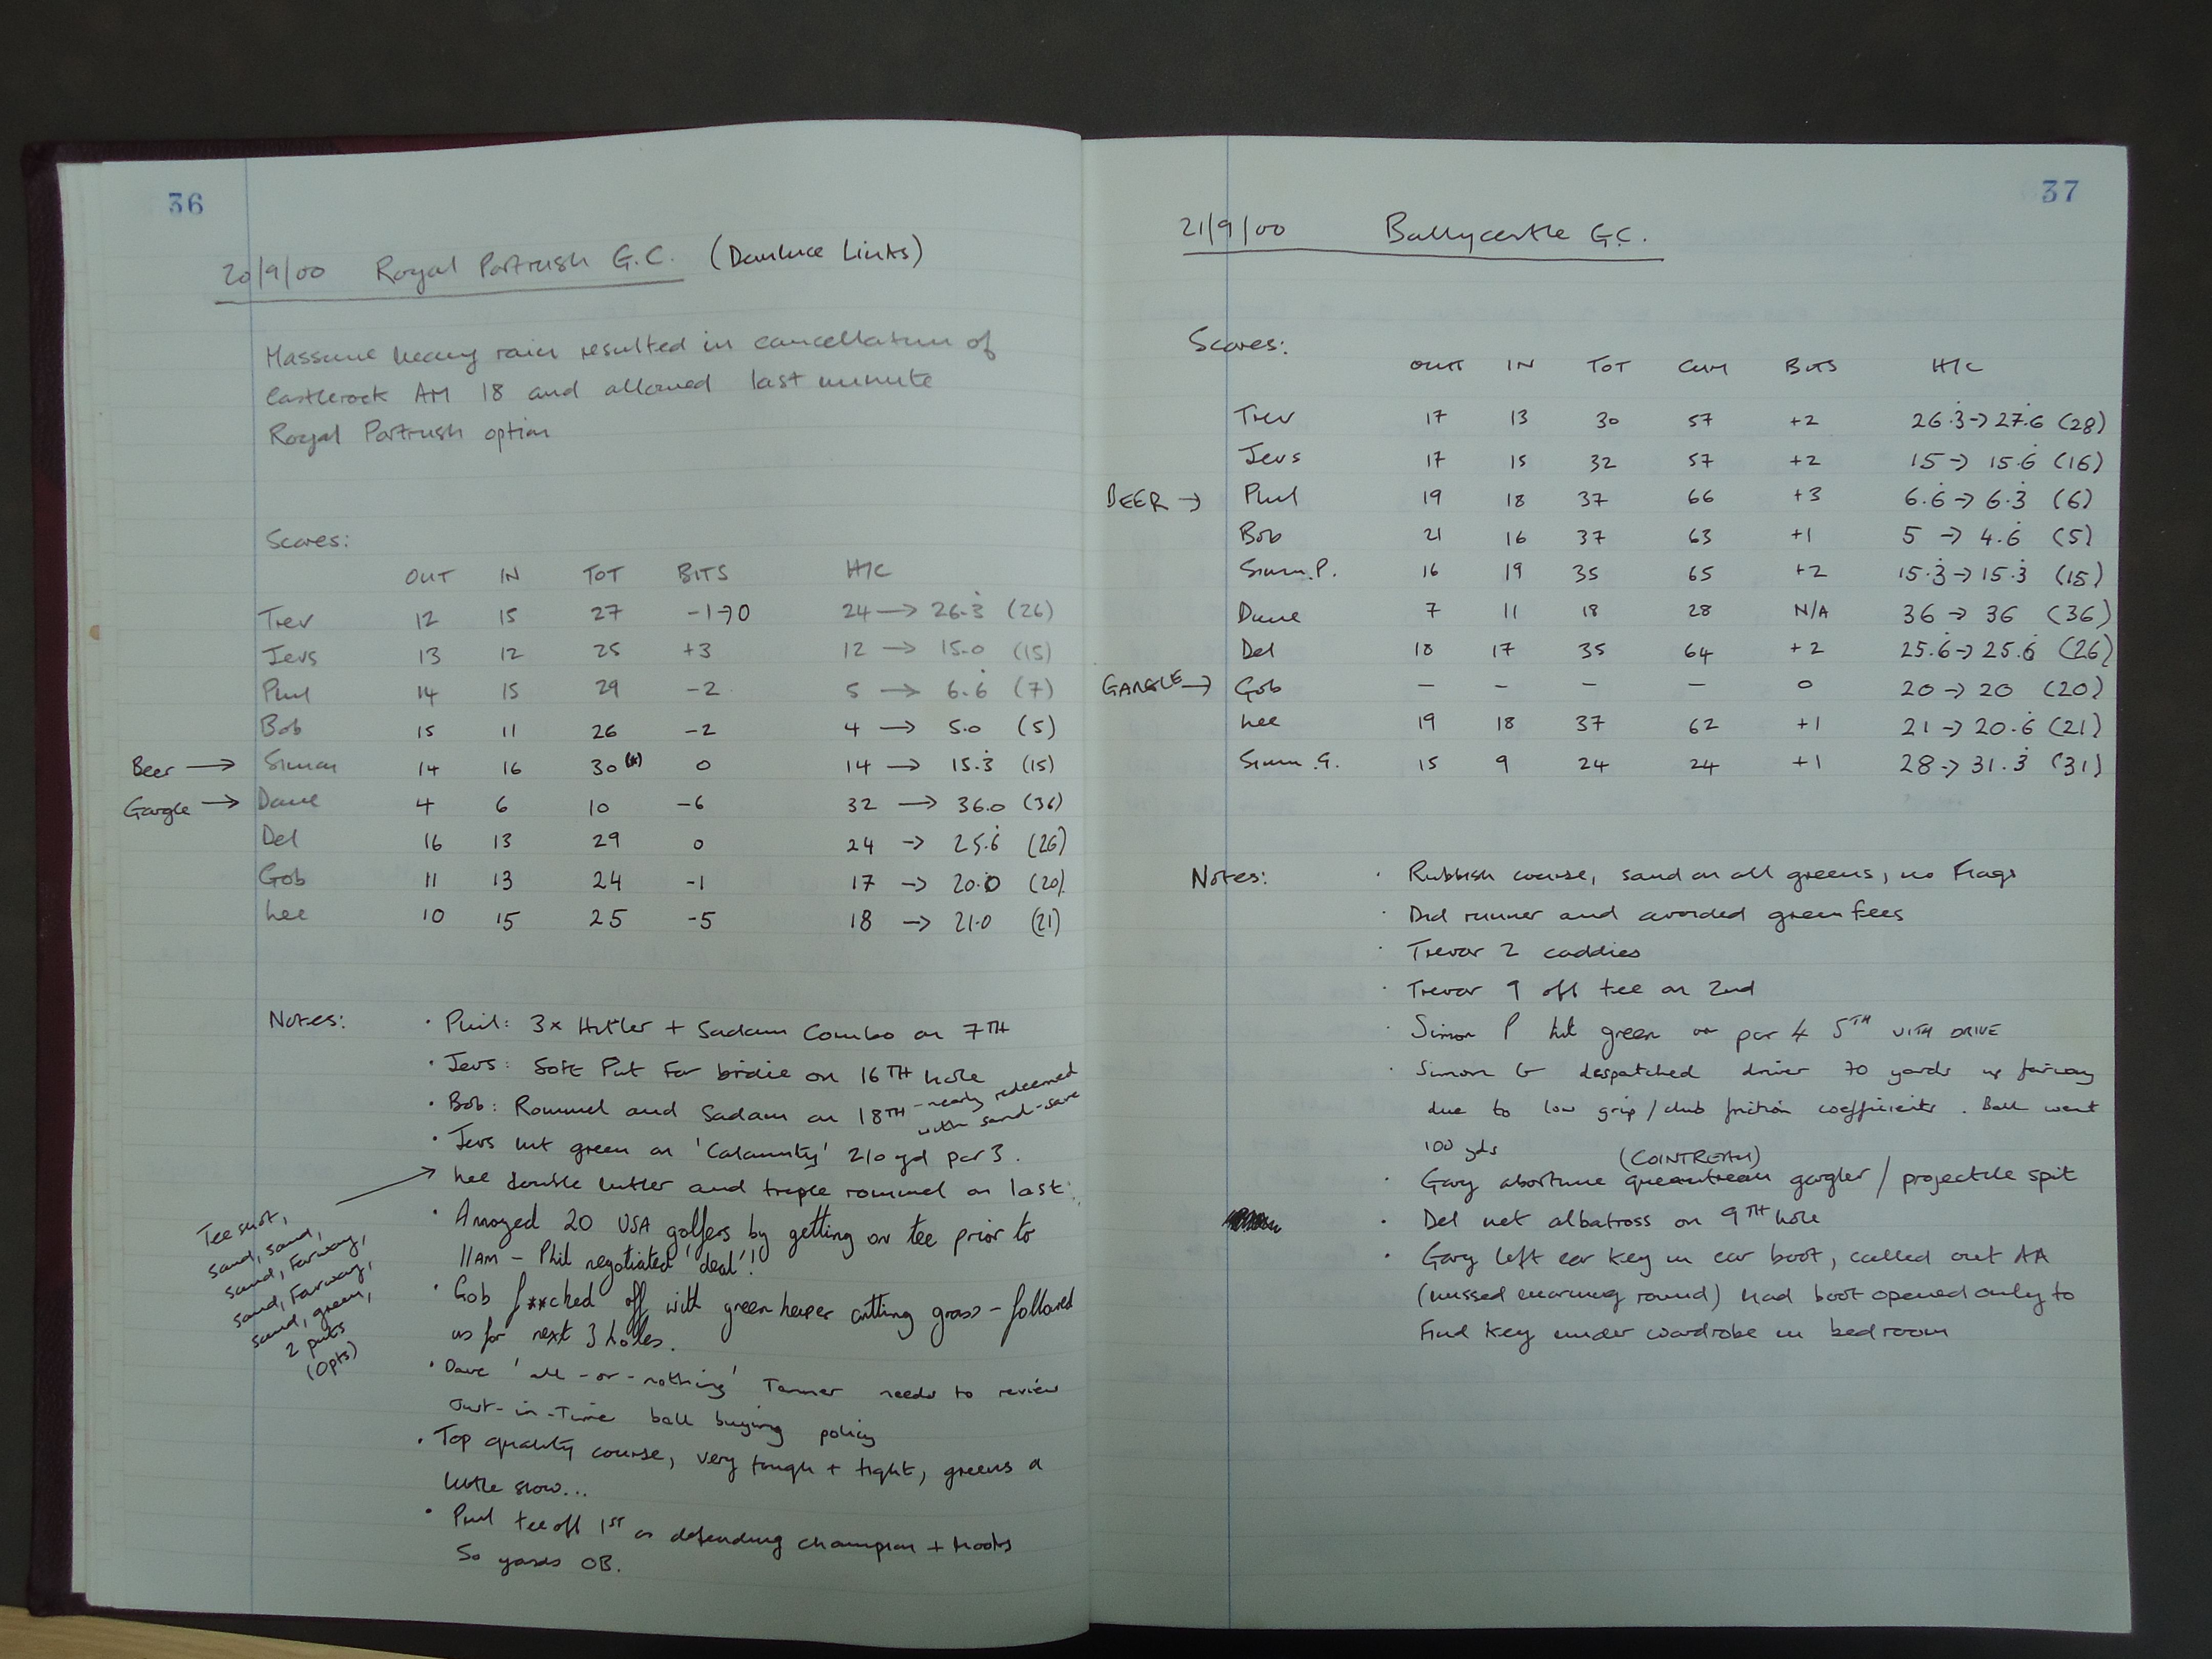 36
20/9/00 Royal Portrush G.C. (Dunluce Links)
Massive heavy rain resulted in cancellation of
Castlerock AM 18 and allowed last minute
Royal Portrush option
Scores:
OUT IN TOT BITS H/C
Trev 12 15 27 -1→0 24 → 26.3̇ (26)
Jevs 13 12 25 +3 12 → 15.0 (15)
Phil 14 15 29 -2 5 → 6.6̇ (7)
Bob 15 11 26 -2 4 → 5.0 (5)
Beer → Simon 14 16 30(*) 0 14 → 15.3̇ (15)
Gargle → Dave 4 6 10 -6 32 → 36.0 (36)
Del 16 13 29 0 24 → 25.6̇ (26)
Gob 11 13 24 -1 17 → 20.0 (20)
Lee 10 15 25 -5 18 → 21.0 (21)
Notes: · Phil: 3x Hitler + Sadam Combo on 7TH
· Jevs: 50ft Put for birdie on 16TH hole
· Bob: Rommel and Sadam on 18TH - nearly redeemed
with sand-save
· Jevs hit green on 'Calamity' 210 yd par 3.
Lee double hitler and triple rommel on last.
Tee shot,
sand, sand,
sand, fairway,
sand, fairway,
sand, green,
2 puts
(0pts)
· Annoyed 20 USA golfers by getting on tee prior to
11AM - Phil negotiated 'deal'!
· Gob f**cked off with greenkeeper cutting grass - followed
us for next 3 holes.
· Dave 'all-or-nothing' Tanner needs to review
Just-in-Time ball buying policy
· Top quality course, very tough + tight, greens a
little slow...
· Phil tee off 1ST as defending champion + hooks
50 yards OB.
37
21/9/00 Ballycastle G.C.
Scores:
OUT IN TOT CUM BITS H/C
Trev 17 13 30 57 +2 26.3̇ → 27.6̇ (28)
Jevs 17 15 32 57 +2 15 → 15.6̇ (16)
BEER → Phil 19 18 37 66 +3 6.6̇ → 6.3̇ (6)
Bob 21 16 37 63 +1 5 → 4.6̇ (5)
Simon.P. 16 19 35 65 +2 15.3̇ → 15.3̇ (15)
Dave 7 11 18 28 N/A 36 → 36 (36)
Del 18 17 35 64 +2 25.6̇ → 25.6̇ (26)
GARGLE → Gob - - - - 0 20 → 20 (20)
Lee 19 18 37 62 +1 21 → 20.6̇ (21)
Simon.G. 15 9 24 24 +1 28 → 31.3̇ (31)
Notes: · Rubbish course, sand on all greens, no Flags
· Did runner and avoided green fees
· Trevor 2 caddies
· Trevor 9 off tee on 2nd
· Simon P hit green on par 4 5TH WITH DRIVE
· Simon G despatched driver 70 yards up fairway
due to low grip/club friction coefficients. Ball went
100 yds
(COINTREAU)
· Gary abortive gargler / projectile spit
· Del net albatross on 9TH hole
· Gary left car key in car boot, called out AA
(missed morning round) had boot opened only to
Find key under wardrobe in bedroom